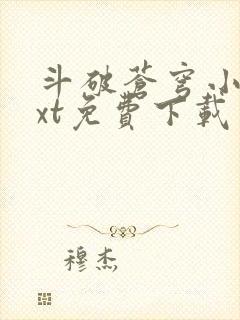 斗破蒼穹小
xt免費下載
穆杰